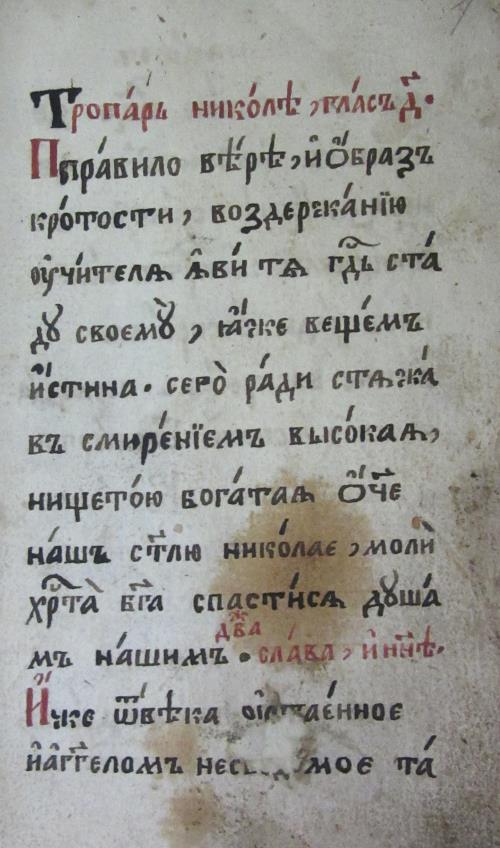 Тропа́рь нико́лѣ, гла́съ д҃·
Пра́вило вѣ́рѣ, и҆ ѻ҆́бразъ
кро́тости, воздержа́нїю
ᲂу҆чи́телѧ ꙗ҆ви́ тѧ гд҇ь ста́
дꙋ своемꙋ̀, ꙗ҆́же веще́мъ
и҆́стина· сего̀ ра́ди стѧжа́
въ смире́нїемъ высо́каѧ,
нището́ю бога́таѧ ѻ҆́ч҃е
на́шъ ст҃лю нико́лае, моли̾
хрⷭ҇та̀ бг҃а спасти́сѧ дꙋша́
мъ на́шимъ· два́ж сла́ва, и҆ нн҃ѣ·
И҆́же ѿвѣка
и҆ а҆́гг҃еломъ та́